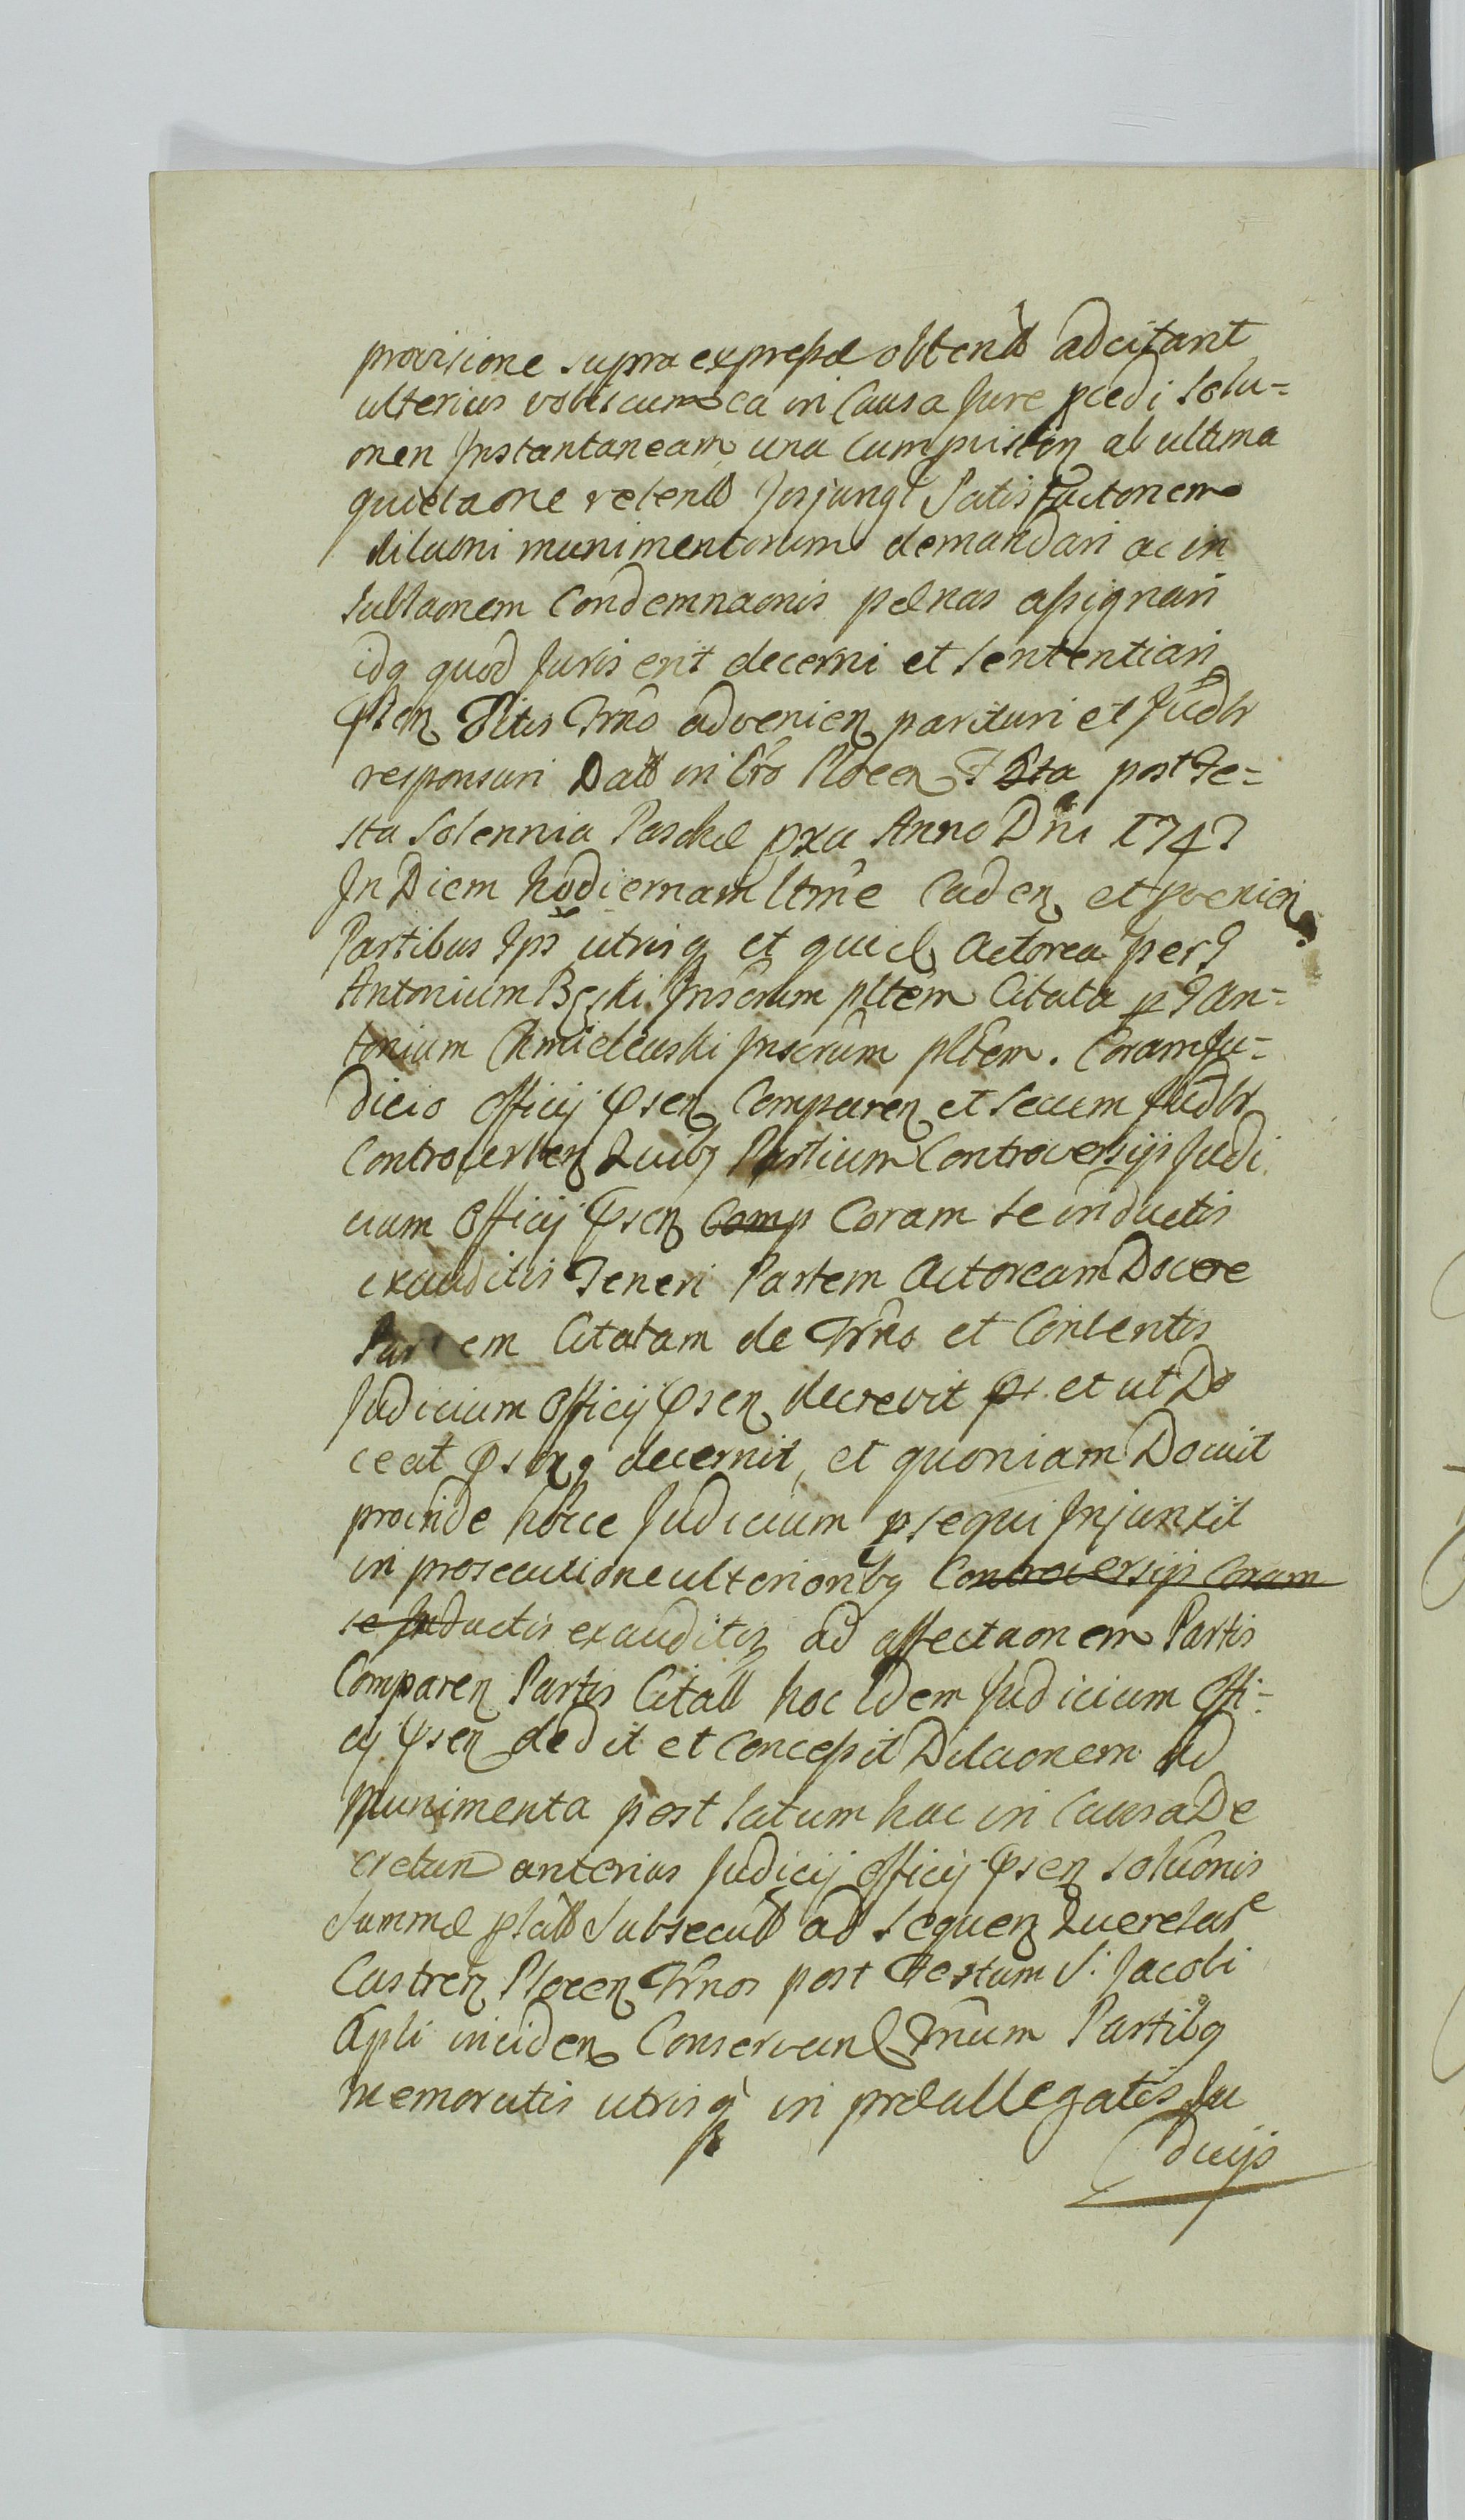 provisione supra expressæ obtent adcitant
ulterius vobiscum ea in Causa Jure pcedi Solu=
onen Instantaneam una cum pvision ab ultima
quietaone retent Injungi Satisfactonem
dilaoni munimentorum demandari ac in
sublaonem Condemnaonis pœnas assignari
idq quod Juris erit decerni et sententiari
Psen Citis Trno advenien parituri et Judlr
responsuri Datt in Cro Plocen F 2ta post Fe=
sta Solennia Paschæ pxa Anno Dni 1747
In Diem hodiernam ltme Caden et pvenien
Partibus Ips utrisq et quid Actorea per G
Antonium Bęski Juscrum pltem Citata p G An=
tonium Chmielewski Juscrum pltem. Coram Ju=
dicio Officij Psen Comparen et secum Judlr
Controverten Quibq Partium Controversijs Judi
cium Officij Psen Comp Coram se inductis
exauditis Teneri Partem Actoream Docere
Partem Citatam de Trno et Contentis
Judicium Officij Psen decrevit et ut Do
ceat decernit, et quoniam Docuit
proinde hocce Judicium psequi Injunxit
in prosecutione ulterioribq Controversijs Coram
se Inductis exauditis ad affectaonem Partis
Comparen Partis Citatt hoc Idem Judicium Offi=
cij Psen dedit et Concessit Dilaonem ad
Munimenta post latum hac in Causa De
cretum anterius Judicij Officij Psen Soluonis
Summæ pfatt Subsecutt ad sequen Querelar
Castren Plocen Trnos post Festum S: Jacobi
Apli inciden Conservan Trnum Partibq
memoratis utrisq in præallegatis Ju
dicijs